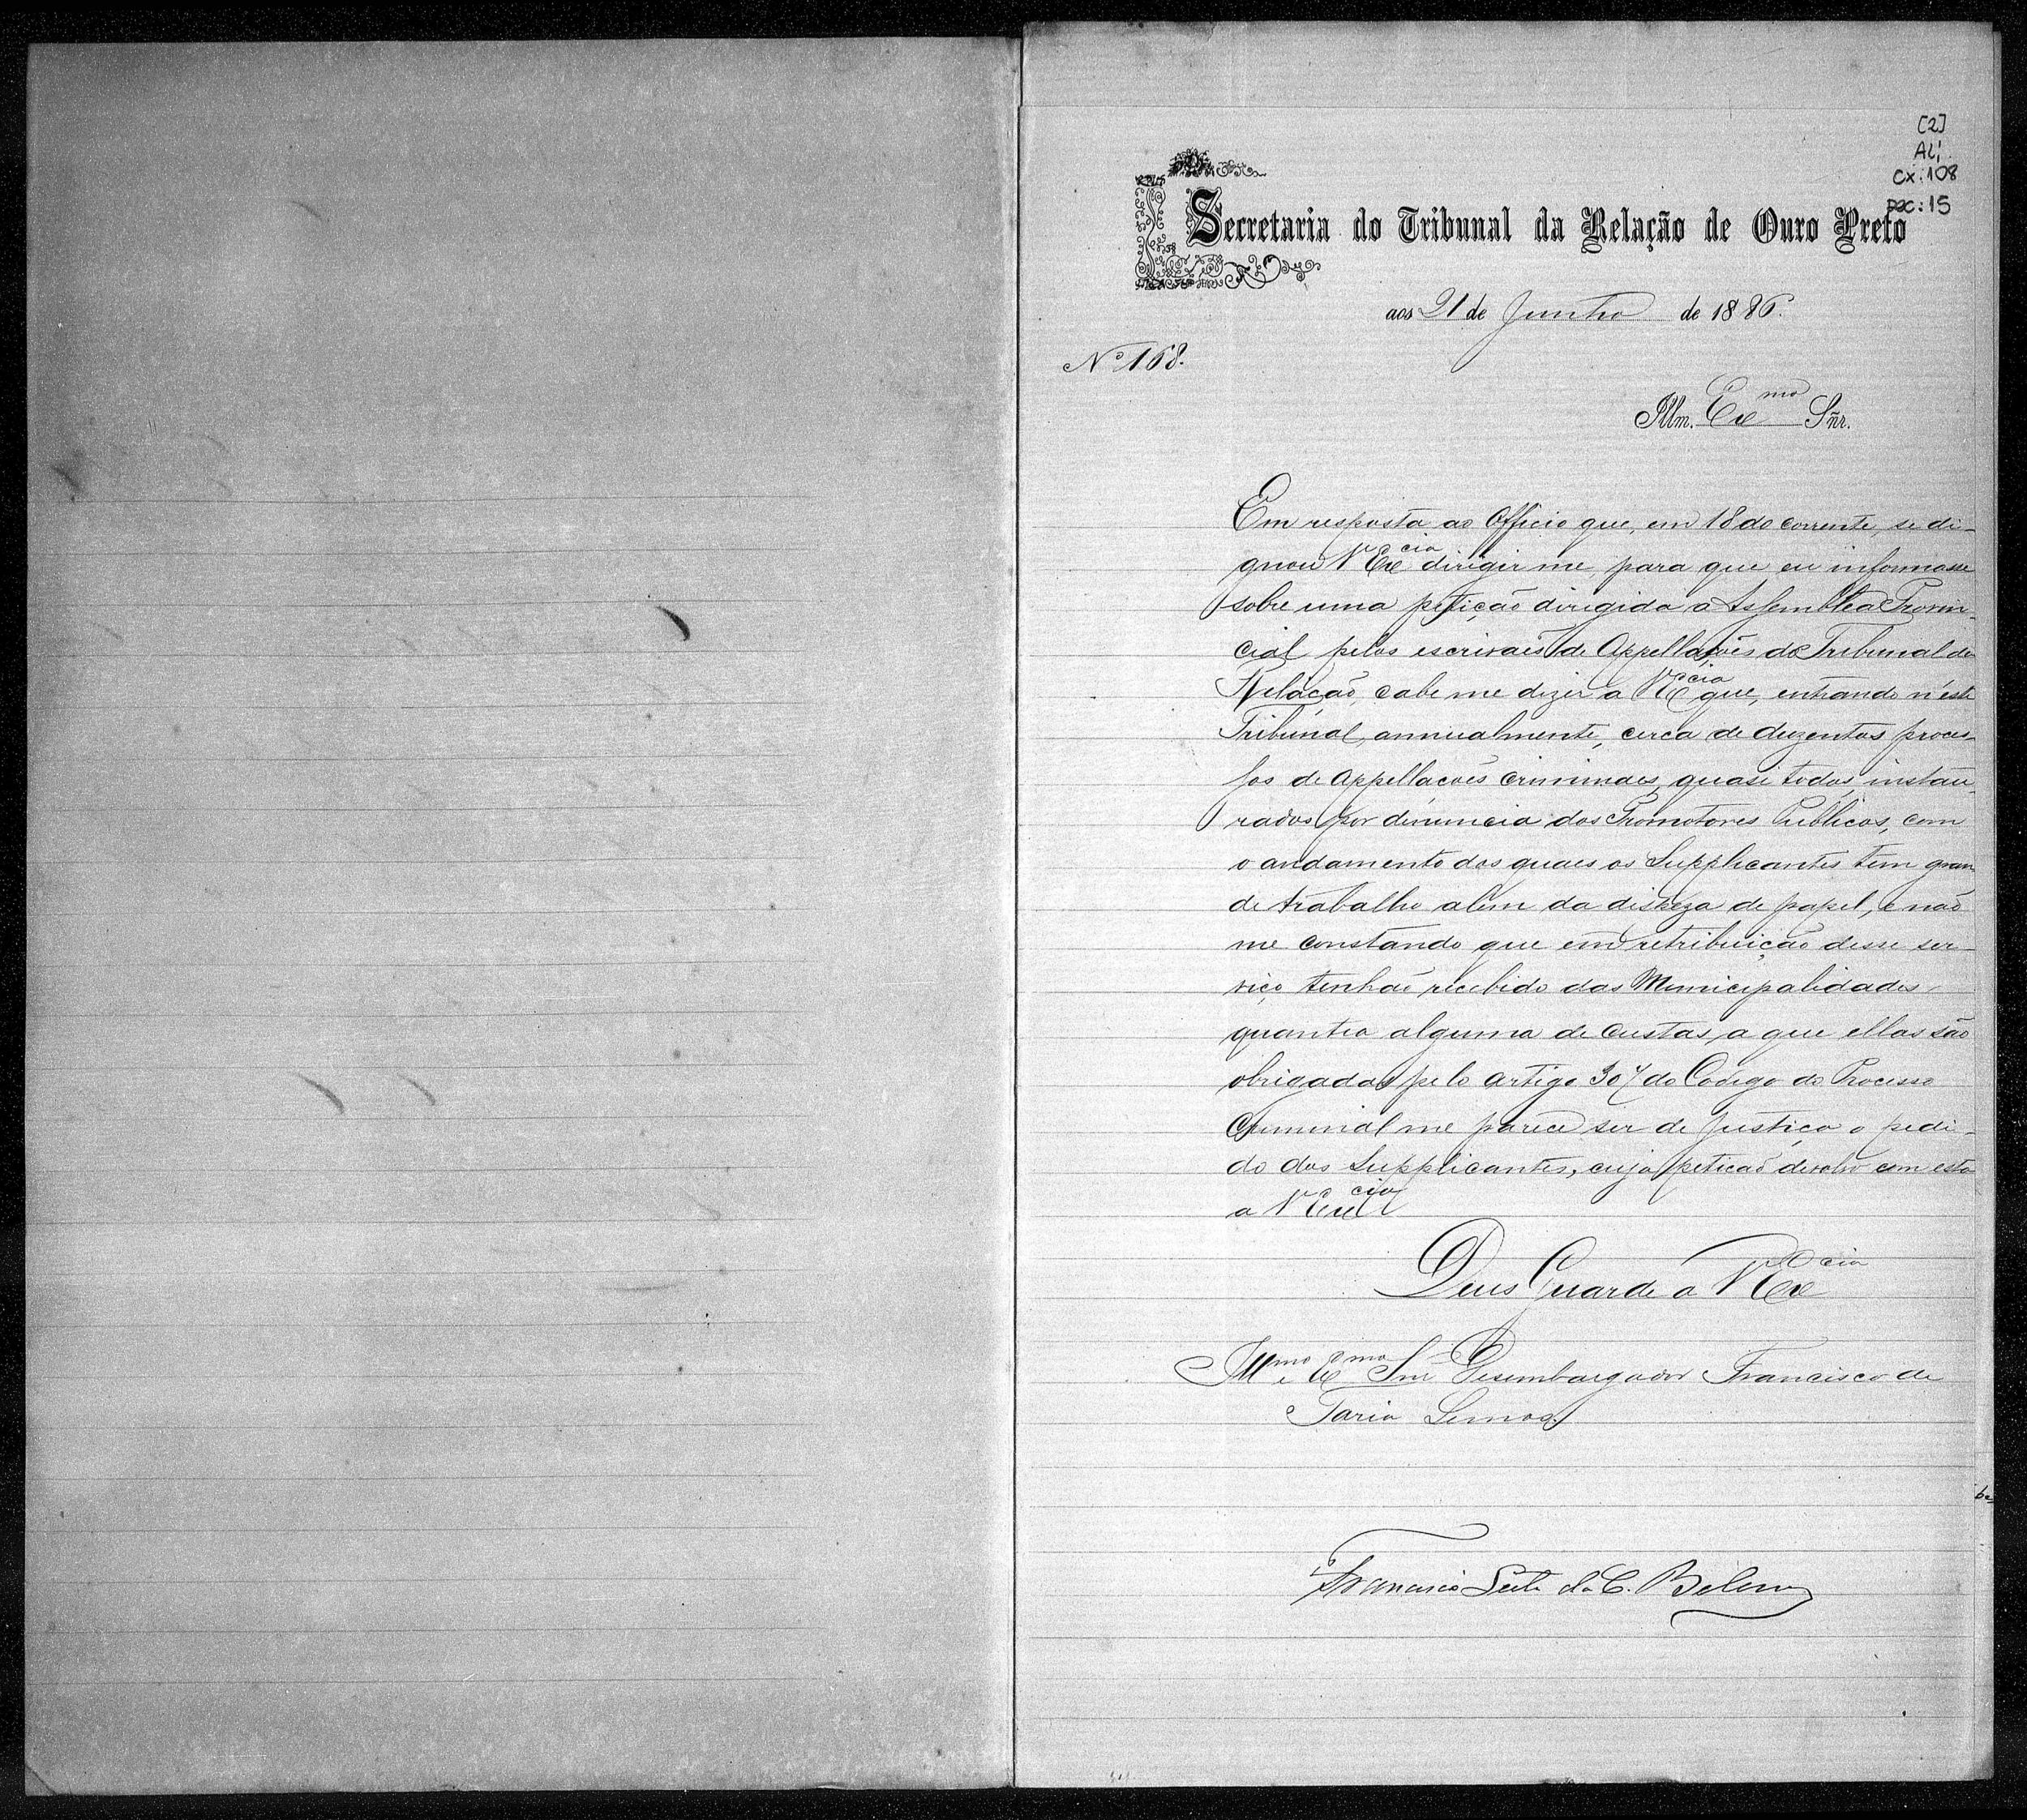 [2]
AL1
cx: 108
pac: 15
Secretaria do Tribunal da Relação de Ouro Preto
aos 21 de Junho de 1886.
Nº 168.
Illm. Exmo Sñr.
Em resposta ao Officio que, em 18 do corrente, se di-
gnou V Excia dirigir me, para que eu informasse
sobre uma petição dirigida a Assemblea Provin-
cial pelos escrivaẽs de Appellaçoẽs do Tribunal da
Relaçaõ, cabe me dizer a V Excia que, entrando n'este
Tribunal, annualmente, cerca de duzentos proces-
sos de Appellaçoẽs criminaes, quasi todos, instau-
rados por denuncia dos Promotores Publicos, com
o andamento dos quaes os Supplicantes tem gran-
de trabalho alem da despeza de papel, e naõ
me constando que em retribuiçaõ desse ser-
viço tenhaõ recebido das Municipalidades
quantia alguma de custas, a que ellas são
obrigadas pelo artigo 307 do Codigo do Processo
Criminal me parece ser de justiça o pedi-
do dos Supplicantes, cuja petiçaõ devolvo com esta
a V Excia
Deus Guarde a V Excia
Illmo e Exmo Snr Desembargador Francisco de
Faria Lemos.
Francisco Leite da C. Belem